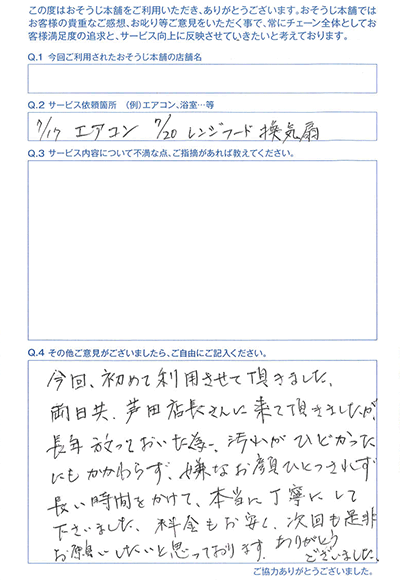 この度はおそうじ本舗をご利用いただき、ありがとうございます。おそうじ本舗では
お客様の貴重なご感想、お叱り等ご意見をいただく事で、常にチェーン全体としてお
客様満足度の追求と、サービス向上に反映させていきたいと考えております。
Q.1 今回ご利用されたおそうじ本舗の店舗名
Q.2 サービス依頼箇所 (例)エアコン、浴室…等
7/17 エアコン 7/20 レンジフード 換気扇
Q.3 サービス内容について不満な点、ご指摘があれば教えてください。
Q.4 その他ご意見がございましたら、ご自由にご記入ください。
今回、初めて利用させて頂きました。
両日共、芦田店長さんに来て頂きましたが、
長年放っておいた為、汚れがひどかった
にもかかわらず、嫌なお顔ひとつされず
長い時間をかけて、本当に丁寧にして
下さいました。料金もお安く、次回も是非
お願いしたいと思っております。ありがとう
ございました。
ご協力ありがとうございました。